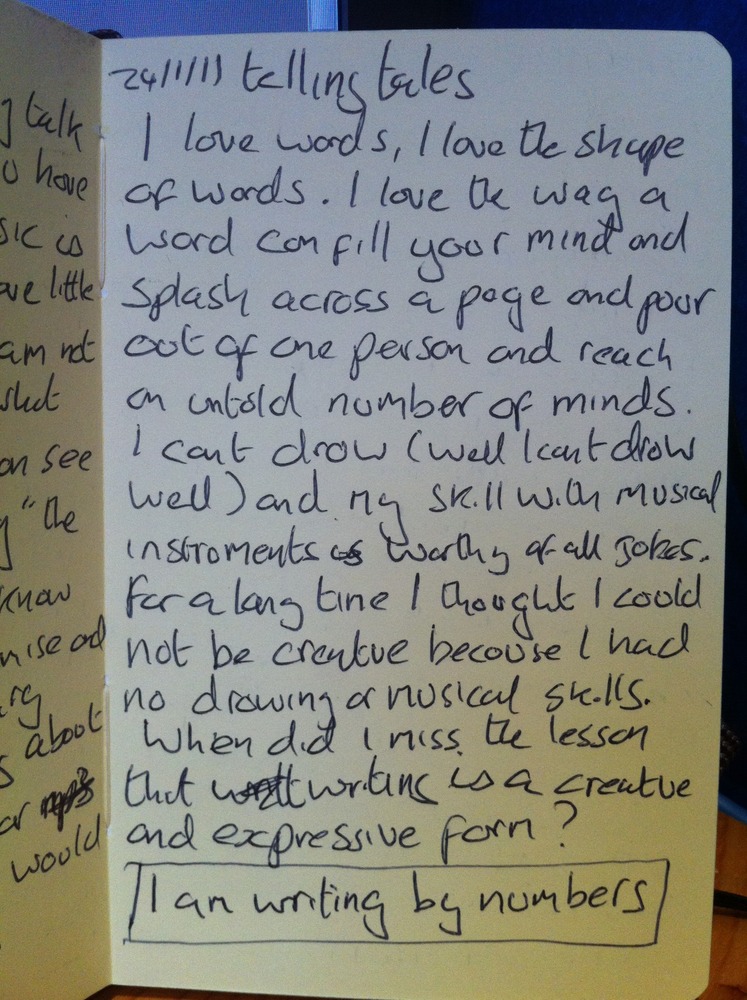 24/1/11) telling tales
I love words, I love the shape
of words. I love the way a
word can fill your mind and
splash across a page and pour
out of one person and reach
an untold number of minds.
I cant draw (well I cant draw
well) and my skill with musical
instroments is worthy of all jokes.
For a long time I thought I could
not be creative because I had
no drawing or musical skills.
When did I miss the lesson
that writing is a creative
and expressive form?
I am writing by numbers
talk
have
is
little
am not
see
"the
know
and
about
would